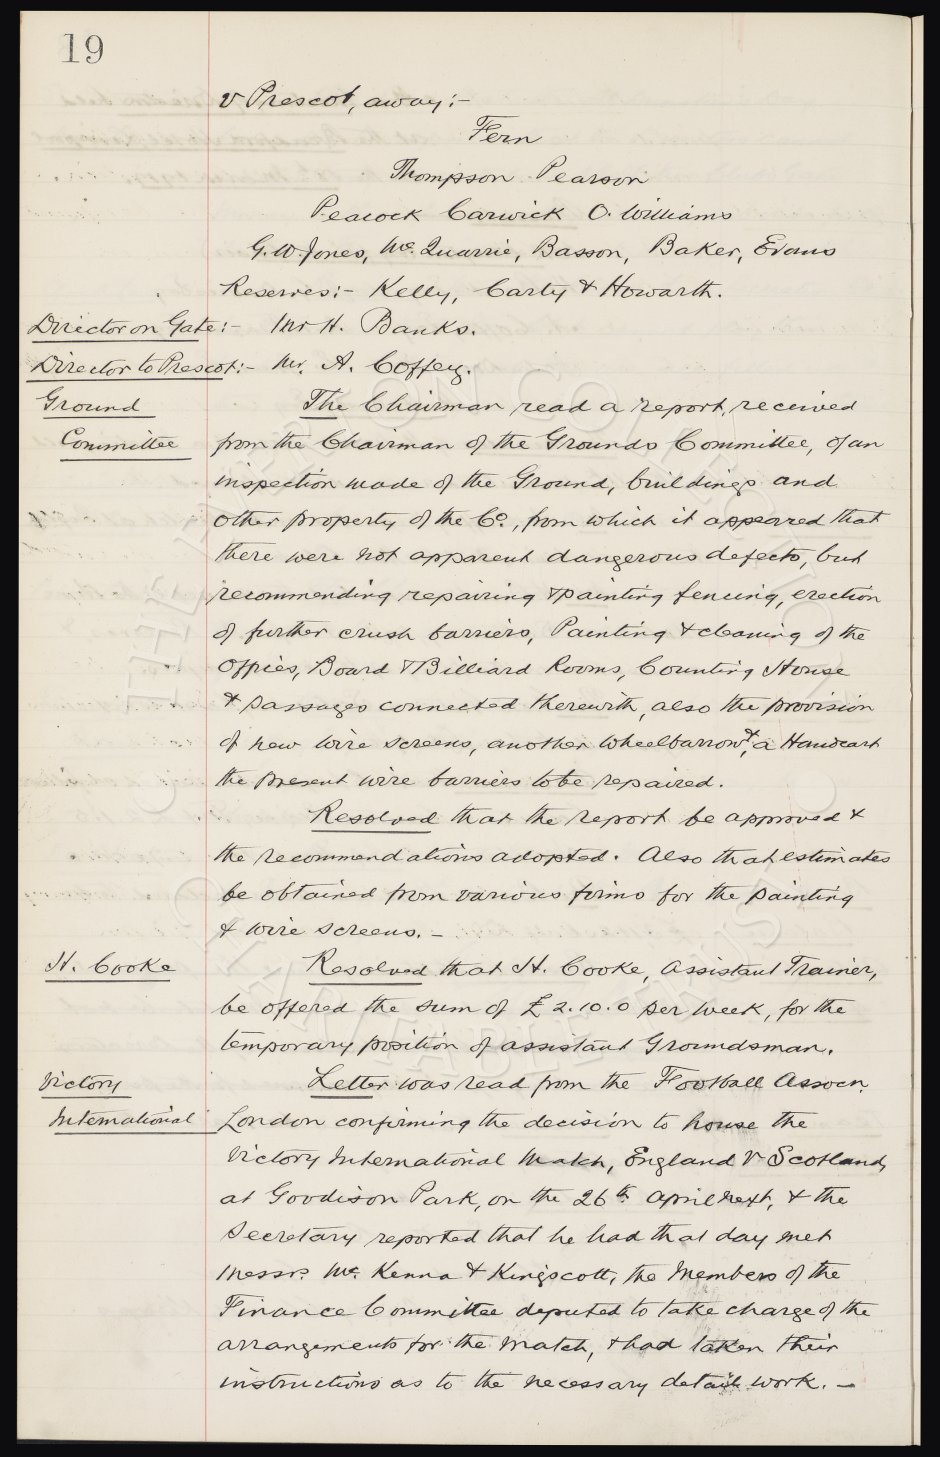 19
v Prescot, away:-
Fern
Thompson Pearson
Peacock Carwick O. Williams
G. W. Jones, Mc. Quarrie, Basson, Baker, Evans
Reserves:- Kelly, Carty & Howarth.
Director on Gate:- Mr H. Banks.
Director to Prescot:- Mr. A. Coffey.
Ground The Chairman read a report, received
Committee from the Chairman of the Grounds Committee, of an
inspection made of the Ground, buildings and
other property of the Co., from which it appeared that
there were not apparent dangerous defects, but
recommending repairing & painting fencing, erection
of further crush barriers, Painting & cleaning of the
Offices, Board & Billiard Rooms, Counting House
& passages connected therewith, also the provision
of new wire screens, another wheelbarrow, & a Handcart
the present wire barriers to be repaired.
Resolved that the report be approved &
the recommendations adopted. Also that estimates
be obtained from various firms for the painting
& wire screens. -
H. Cooke Resolved that H. Cooke, Assistant Trainer,
be offered the sum of £2.10.0 per week, for the
temporary position of assistant Groundsman.
Victory Letter was read from the Football Assocn.
International London confirming the decision to house the
Victory International Match, England v Scotland,
at Goodison Park, on the 26th April next, & the
Secretary reported that he had that day met
Messrs. Mc. Kenna & Kingscott, the Members of the
Finance Committee deputed to take charge of the
arrangements for the match, & had taken their
instructions as to the necessary detail work. -